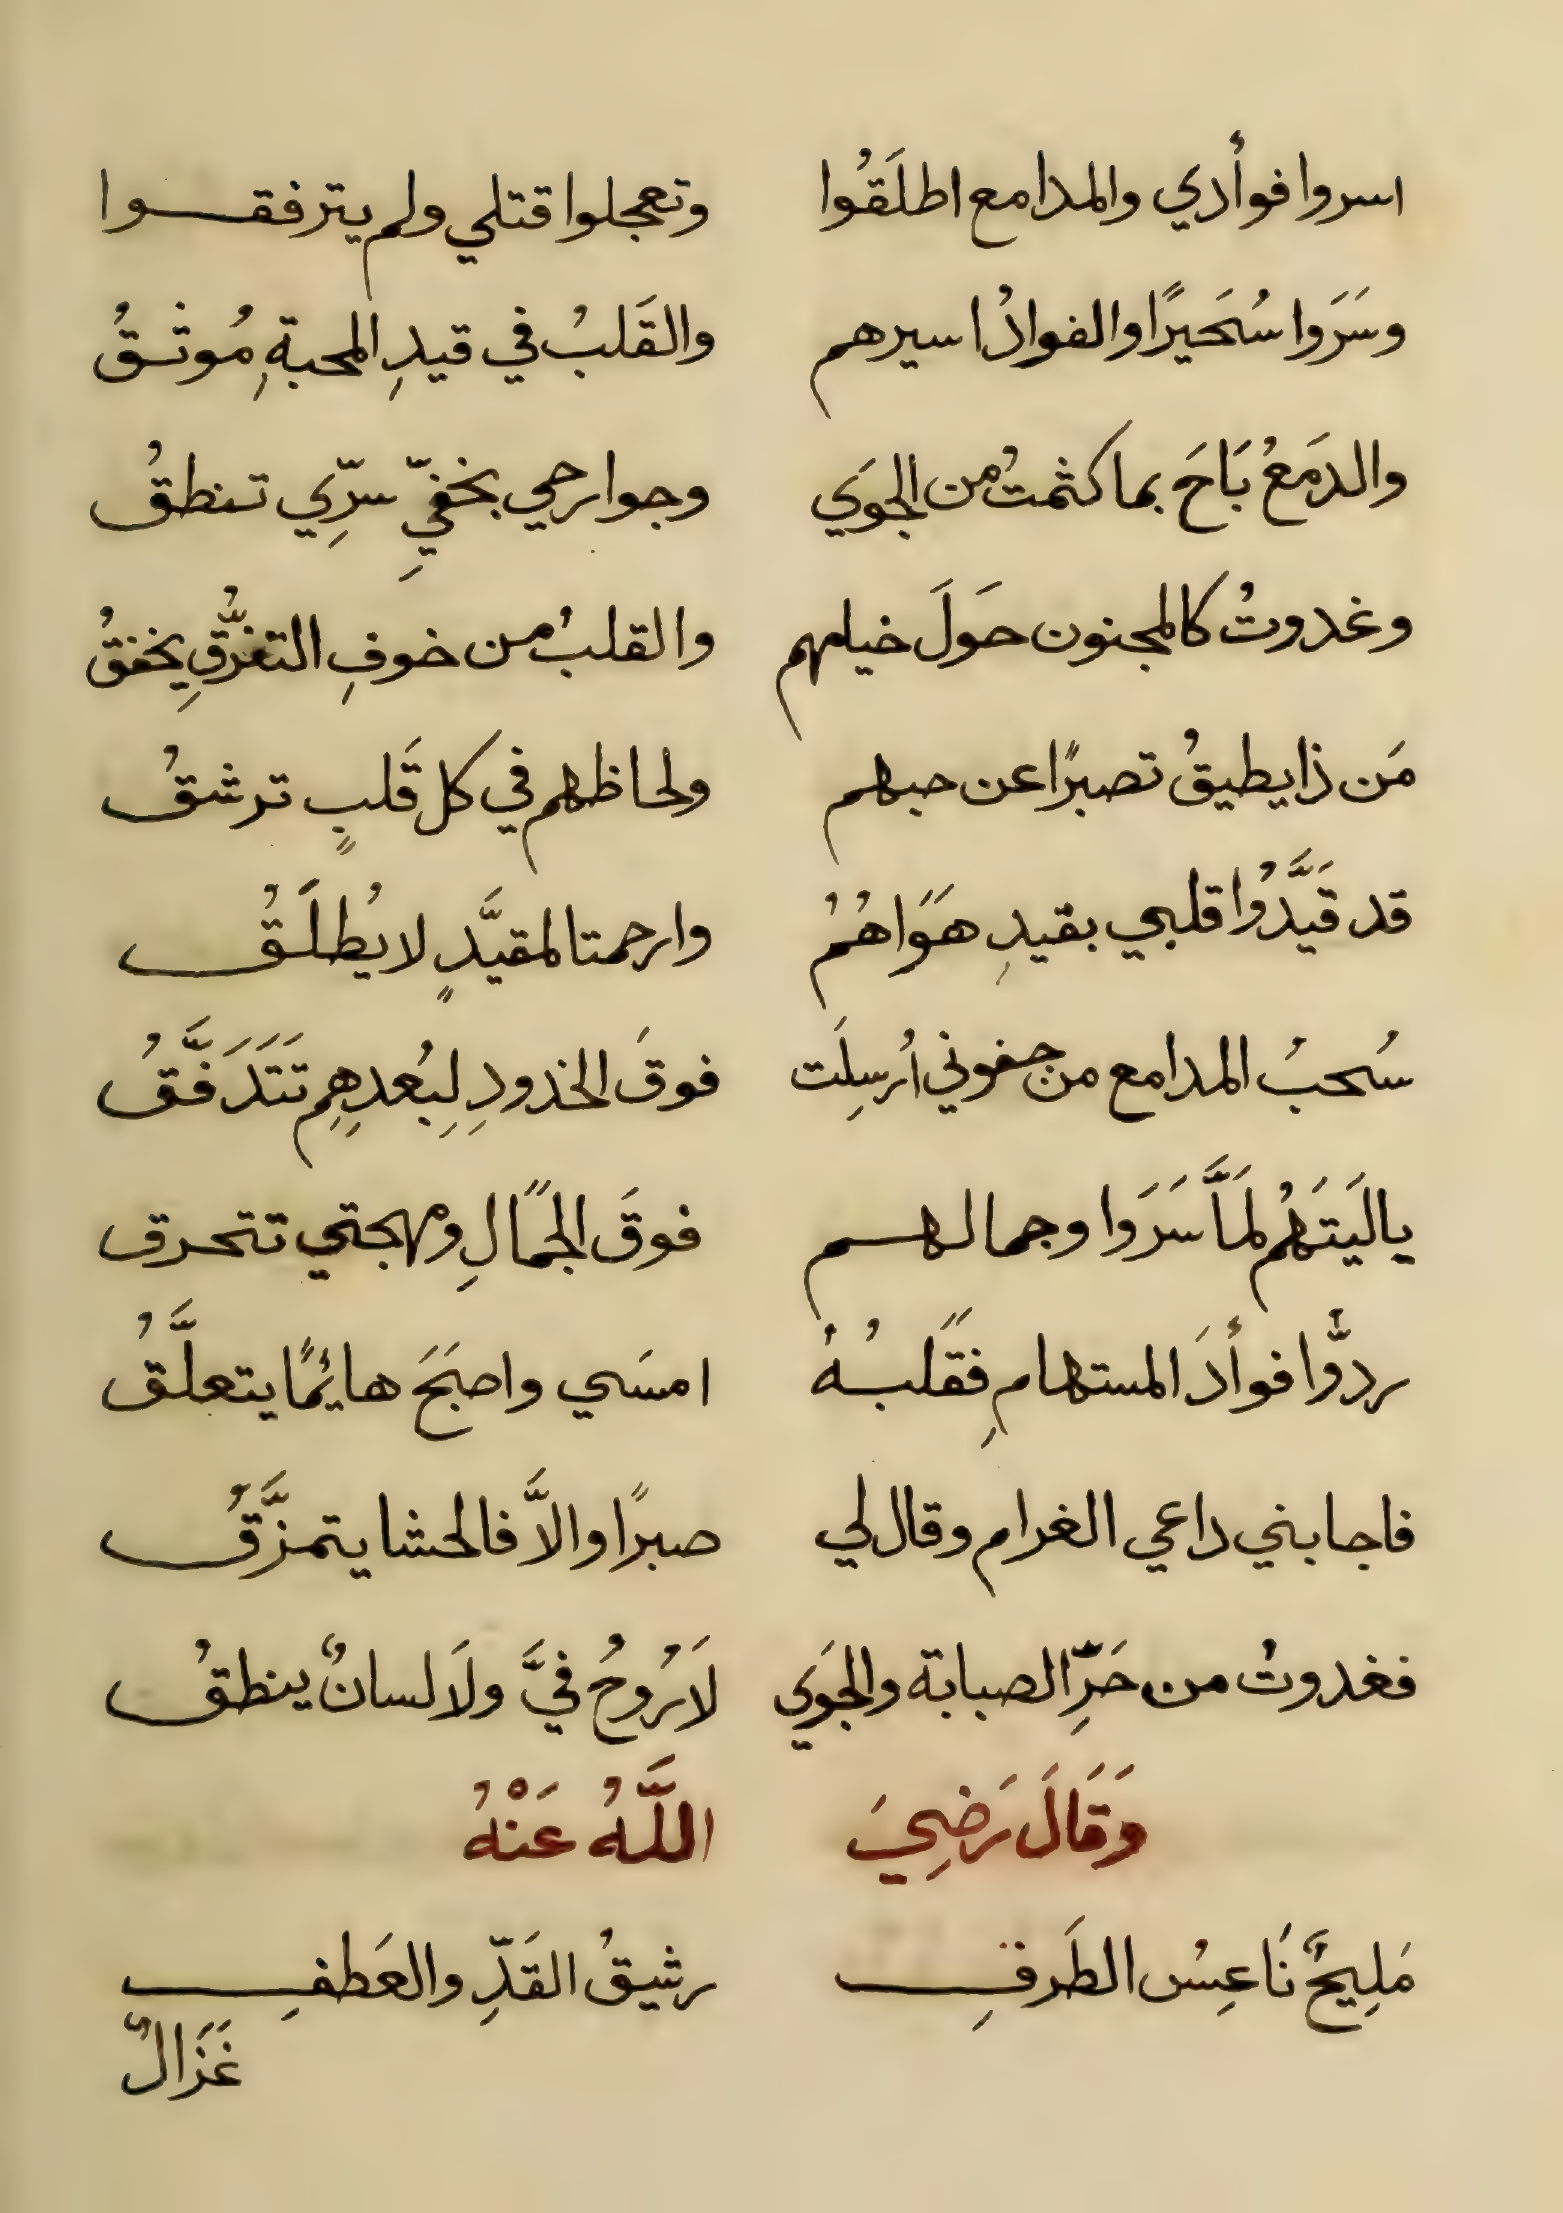 اسروا فوأدي والمدامع اطلَقُوا وتعجلوا قتلي ولم يترفقوا
وسَرَوا سُحَيرًا والفوادُ اسيرهم والقَلبُ في قيدِ المحبةِ مُوثقُ
والدمَعُ بَاحَ بما كثمتُ من الجوَي وجوارحي بخفيِّ سرِّي تنطقُ
وغدوتُ كالمجنون حَولَ خيامهم والقلبُ من خوفِ التفرُّقِ يخفقُ
مَن ذا يطيقُ تصبرًا عن حبهم ولحاظهم في كل قَلبٍ ترشقُ
قد قَيَّدُوا قلبي بقيدِ هَوَاهُمُ وارحمتا لمقيَّدٍ لا يُطلَقُ
سُحبُ المدامع من جفوني أُرسِلَت فوقَ الخدودِ لِبُعدِهِم تَتَدَفَّقُ
يالَيتَهُم لمَّا سَرَوا وجمالهم فوقَ الجمَالِ ومهجتي تتحرق
ردُّوا فوأدَ المستهامِ فقَلبُهُ امسَي واصبَحَ هائمًا يتعلَّقُ
فاجابني داعي الغرام وقال لي صبرًا والاَّ فالحشا يتمزَّقُ
فغدوتُ من حَرِّ الصبابة والجوَي لاَ رُوحُ فيَّ ولاَ لسانٌ ينطقُ
وَقَالَ رَضِيَ اللَّهُ عَنْهُ
مَلِيحٌ نَاعِسُ الطَرفِ رشيقُ القَدِّ والعَطفِ
غَزَالٌ